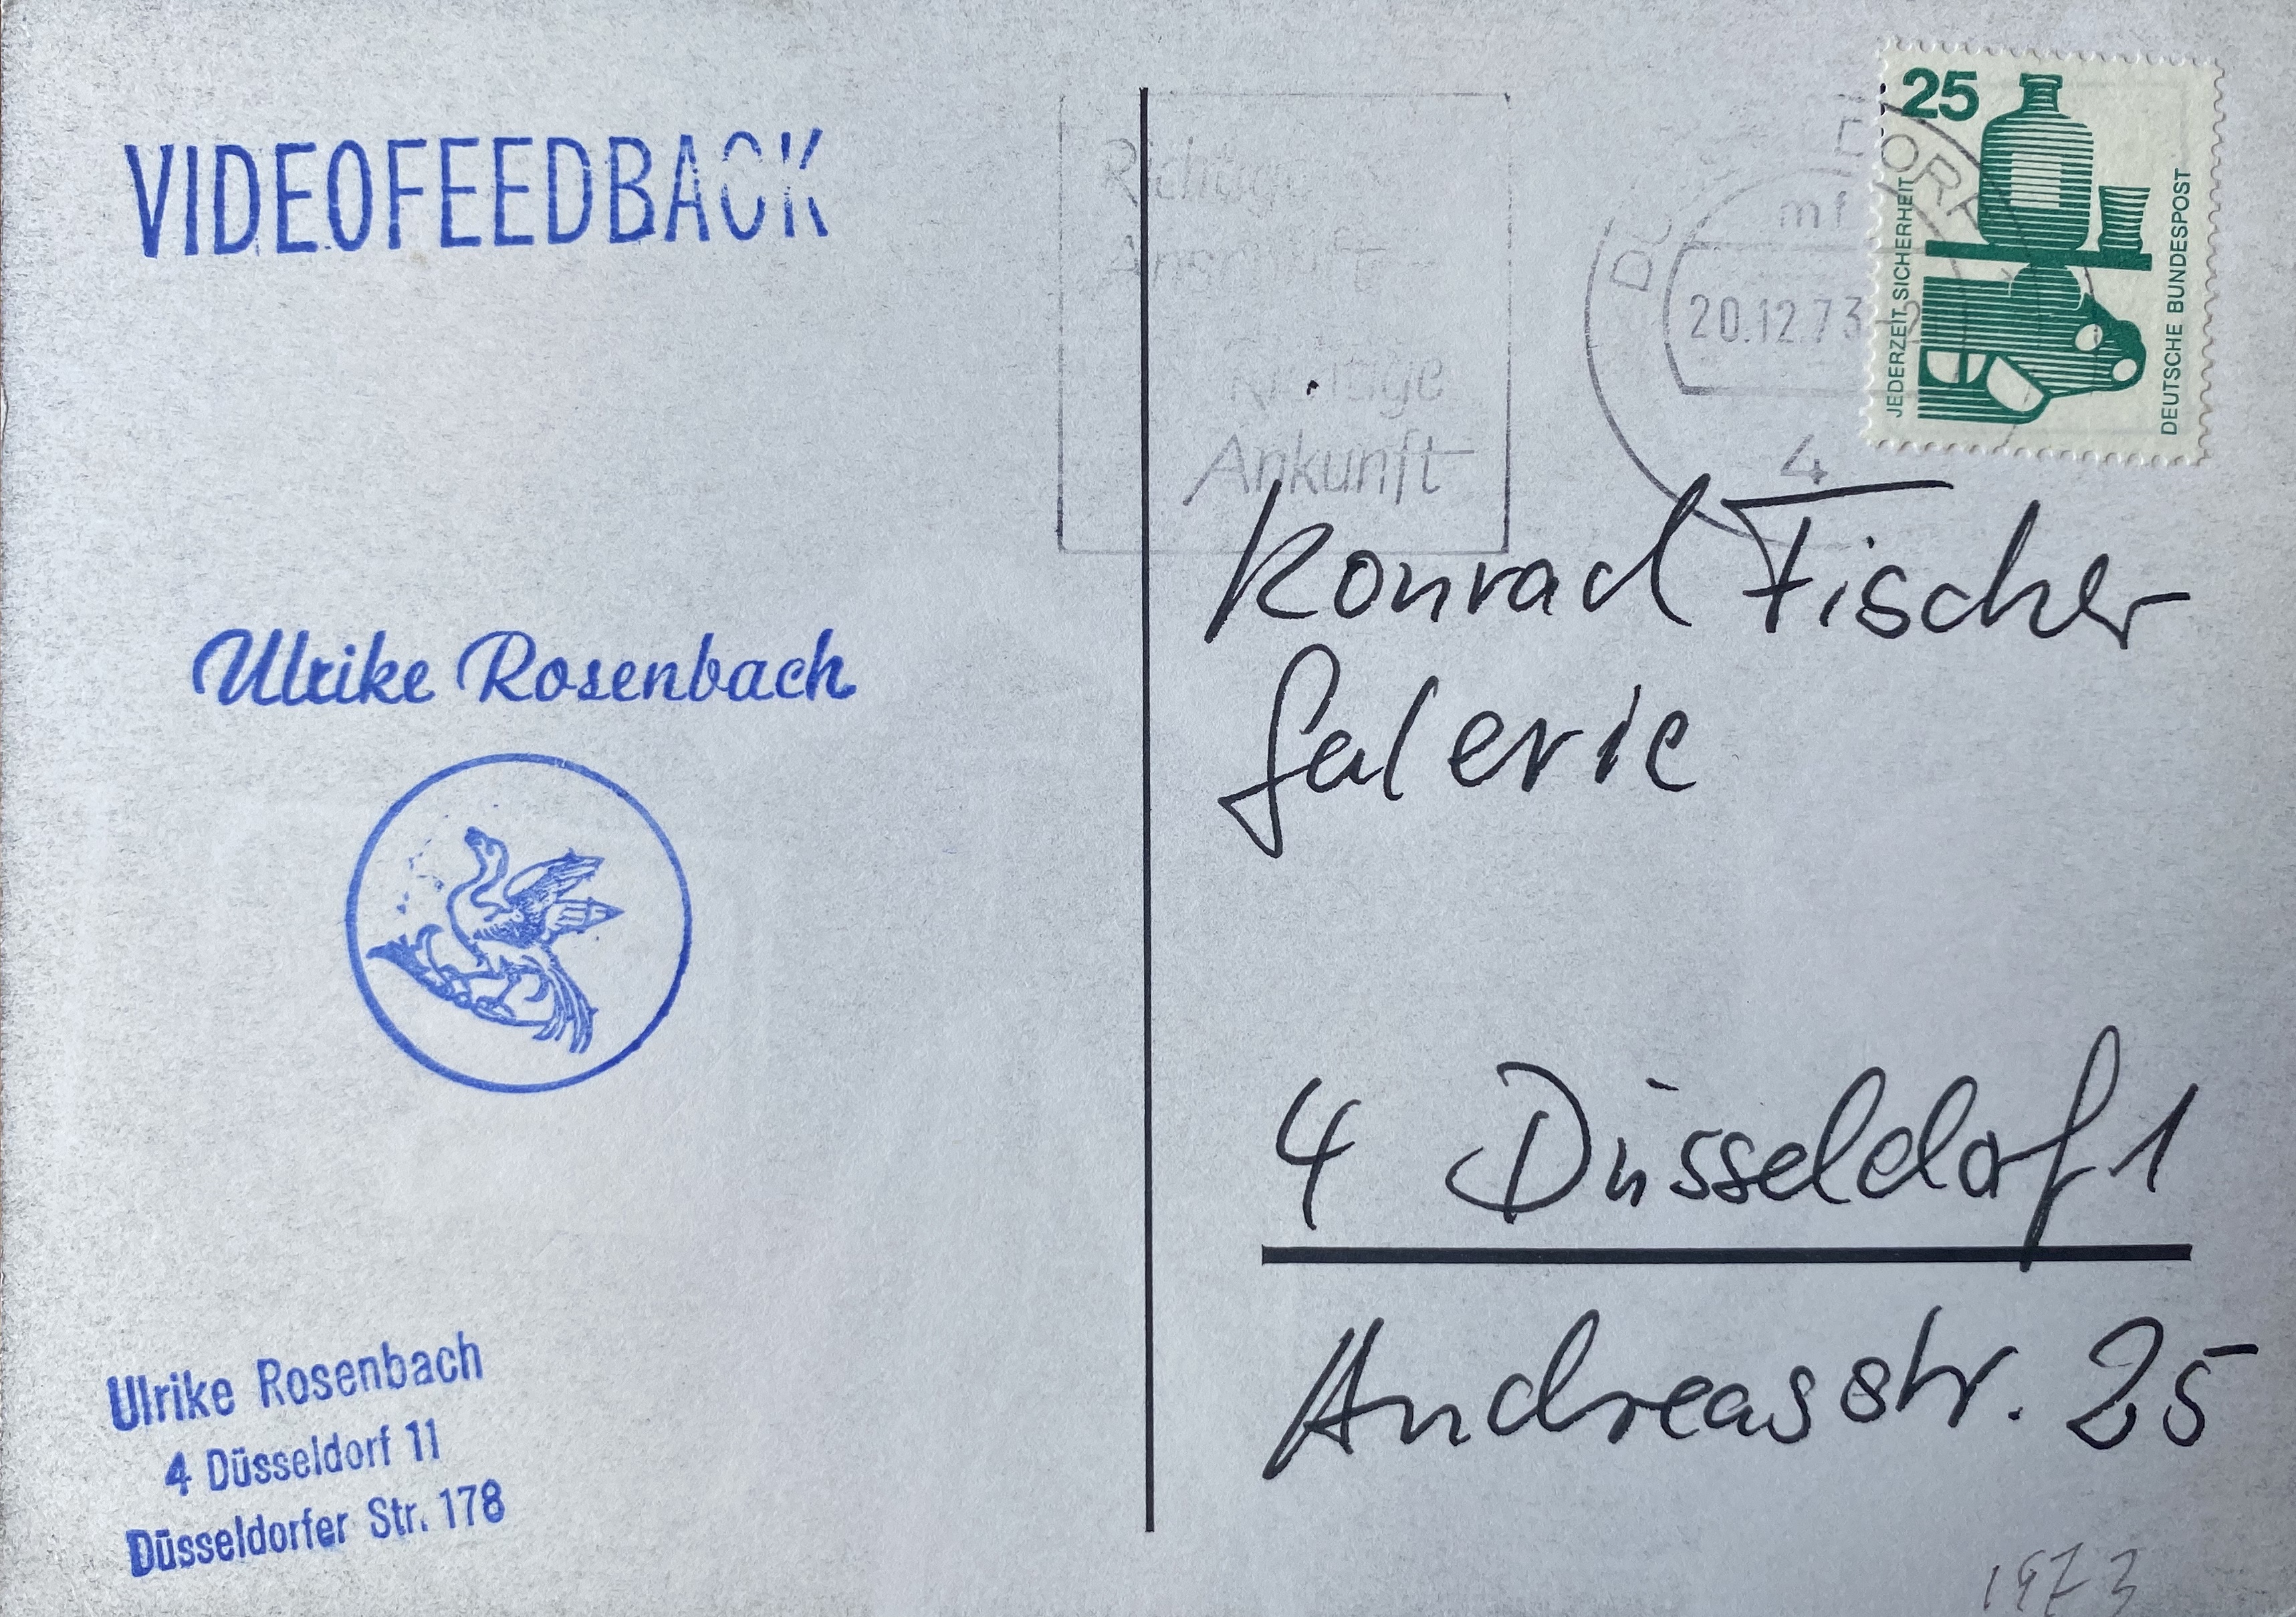 VIDEOFEEDBACK
Ulrike Rosenbach
Ulrike Rosenbach
4 Düsseldorf 11
Düsseldorfer Str. 178
Richtige
Anschrift
Richtige
Ankunft
mf
20.12.73
4
25
JEDERZEIT SICHERHEIT
DEUTSCHE BUNDESPOST
Konrad Fischer
Galerie
4 Düsseldorf 1
Andreasstr. 25
1973